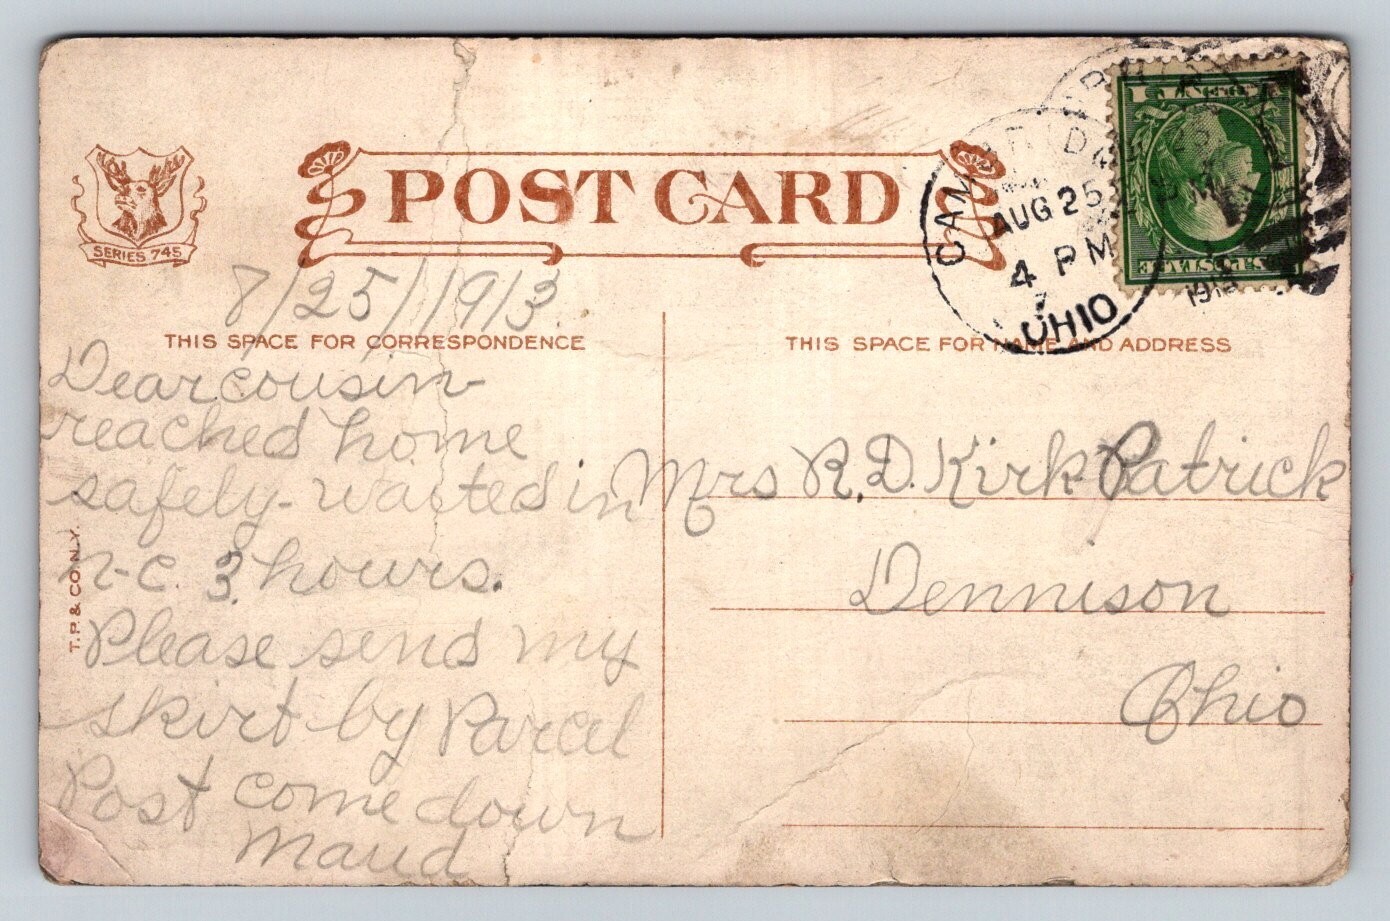 POST CARD
SERIES 745
8/25/1913
THIS SPACE FOR CORRESPONDENCE
Dear cousin
reached home
safely - waited in
n-c. 3 hours.
Please send my
skirt by Parcel
Post come down
Maud
T.P. & CO. N.Y.
CAMBRIDGE
AUG 25
4 PM
OHIO
THIS SPACE FOR NAME AND ADDRESS
Mrs R.D. KirkPatrick
Dennison
Ohio